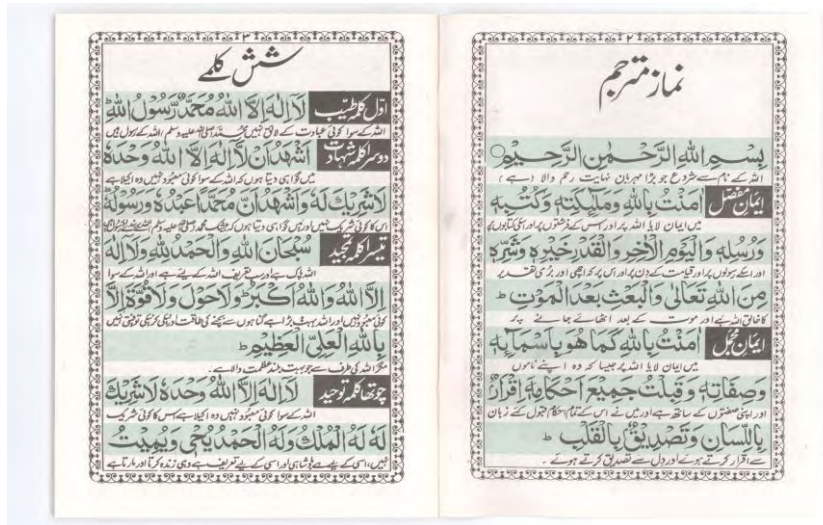 ۲
نماز مترجم
بِسْمِ اللهِ الرَّحْمٰنِ الرَّحِيْمِ
اللہ کے نام سے شروع جو بڑا مہربان نہایت رحم والا ہے
ایمان مفصل اٰمَنْتُ بِاللهِ وَمَلٰٓئِكَتِهٖ وَكُتُبِهٖ
میں ایمان لایا اللہ پر اور اس کے فرشتوں پر اور اسکی کتابوں پر
وَرُسُلِهٖ وَالْيَوْمِ الْاٰخِرِ وَالْقَدْرِ خَيْرِهٖ وَشَرِّهٖ
اور اسکے رسولوں پر اور قیامت کے دن پر اور اس پر کہ اچھی اور بری تقدیر
مِنَ اللهِ تَعَالٰى وَالْبَعْثِ بَعْدَ الْمَوْتِ ط
کا خالق اللہ ہے اور موت کے بعد اٹھائے جانے پر
ایمان مجمل اٰمَنْتُ بِاللهِ كَمَا هُوَ بِاَسْمَآئِهٖ
میں ایمان لایا اللہ پر جیسا کہ وہ اپنے ناموں
وَصِفَاتِهٖ وَقَبِلْتُ جَمِيْعَ اَحْكَامِهٖ اِقْرَارٌ
اور اپنی صفتوں کے ساتھ ہے اور میں نے اس کے تمام احکام قبول کئے زبان
بِاللِّسَانِ وَتَصْدِيْقٌ بِالْقَلْبِ ط
سے اقرار کرتے ہوئے اور دل سے تصدیق کرتے ہوئے ۔
۳
شش کلمے
اوّل کلمہ طیّب لَآ اِلٰهَ اِلَّا اللهُ مُحَمَّدٌ رَّسُوْلُ اللهِ
اللہ کے سوا کوئی عبادت کے لائق نہیں محمد صلی اللہ علیہ وسلم اللہ کے رسول ہیں
دوسرا کلمہ شہادت اَشْهَدُ اَنْ لَّآ اِلٰهَ اِلَّا اللهُ وَحْدَهٗ
میں گواہی دیتا ہوں کہ اللہ کے سوا کوئی معبود نہیں وہ اکیلا ہے
لَا شَرِيْكَ لَهٗ وَاَشْهَدُ اَنَّ مُحَمَّدًا عَبْدُهٗ وَرَسُوْلُهٗ
اس کا کوئی شریک نہیں اور میں گواہی دیتا ہوں کہ بیشک محمد صلی اللہ علیہ وسلم
تیسرا کلمہ تمجید سُبْحَانَ اللهِ وَالْحَمْدُ لِلّٰهِ وَلَآ اِلٰهَ
اللہ پاک ہے اور سب تعریف اللہ کے لیے ہے اور اللہ کے سوا
اِلَّا اللهُ وَاللهُ اَكْبَرُ ط وَلَا حَوْلَ وَلَا قُوَّةَ اِلَّا
کوئی معبود نہیں اور اللہ بہت بڑا ہے گناہوں سے بچنے کی طاقت اور نیکی کرنیکی توفیق نہیں
بِاللهِ الْعَلِيِّ الْعَظِيْمِ ط
مگر اللہ کی طرف سے جو بہت بلند عظمت والا ہے ۔
چوتھا کلمہ توحید لَآ اِلٰهَ اِلَّا اللهُ وَحْدَهٗ لَا شَرِيْكَ
اللہ کے سوا کوئی معبود نہیں وہ اکیلا ہے اس کا کوئی شریک
لَهٗ لَهُ الْمُلْكُ وَلَهُ الْحَمْدُ يُحْيٖ وَيُمِيْتُ
نہیں، اسی کے لیے ہے بادشاہی اور اسی کے لیے تعریف ہے وہی زندہ کرتا اور مارتا ہے